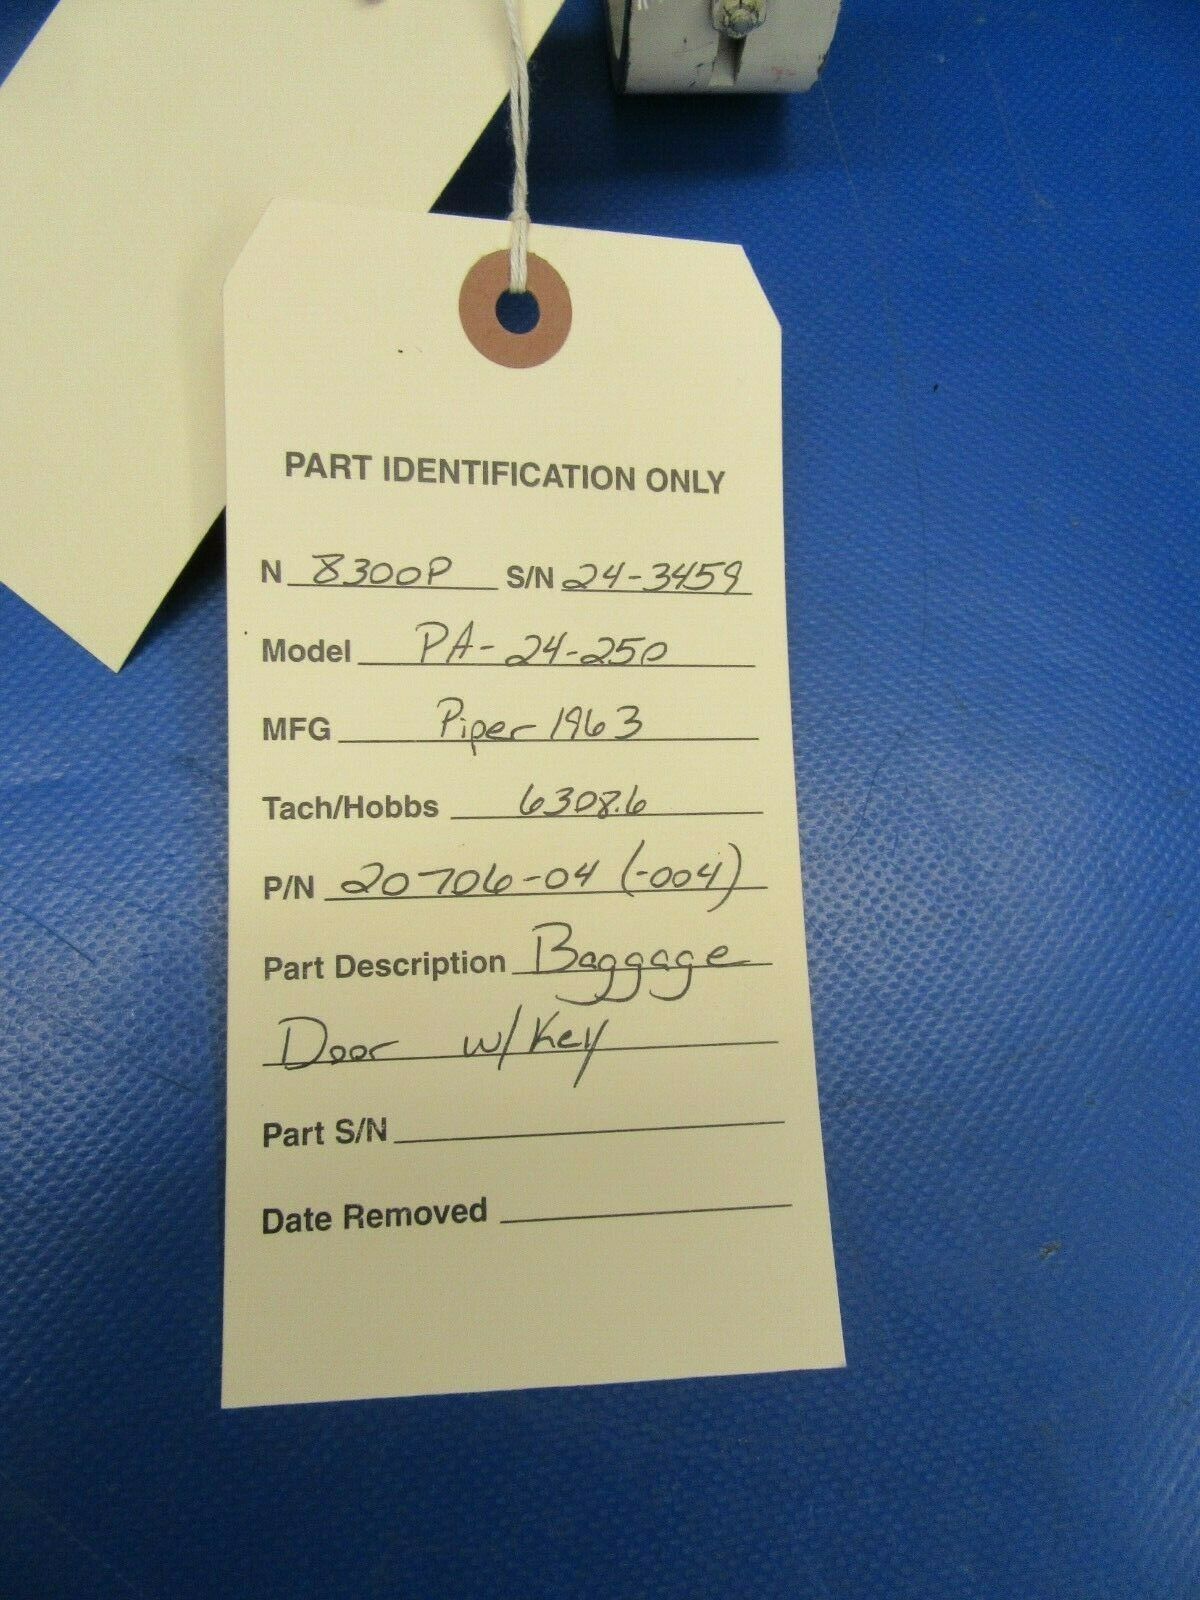 PART IDENTIFICATION ONLY
N 8300P S/N 24-3459
Model PA-24-250
MFG Piper 1963
Tach/Hobbs 6308.6
P/N 20706-04 (-004)
Part Description Baggage
Door w/ Key
Part S/N
Date Removed